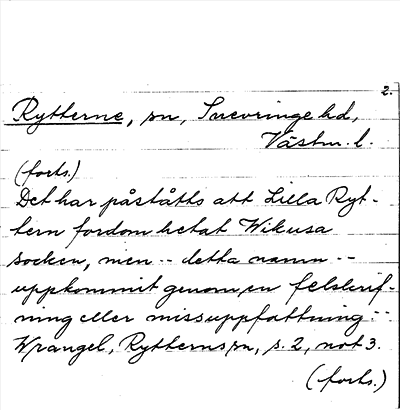 2.
Rytterne, sn, Snevringe hd,
Västm. l.
(forts.)
Det har påståtts att Lilla Ryt-
tern fordom hetat Wikusa
socken, men -- detta namn --
uppkommit genom en felskrif-
ning eller missuppfattning --
Wrangel, Rytterns sn, s. 2, not 3.
(forts.)